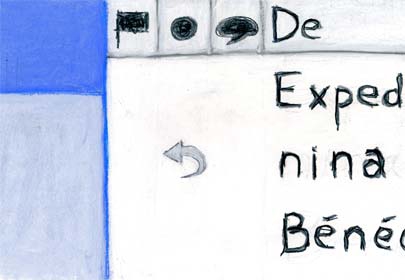 De
Exped
nina
Béné